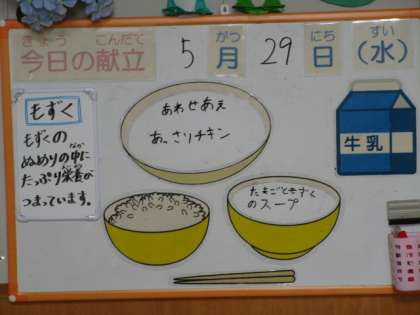 きょう こんだて
今日の献立
がつ にち すい
5月29日(水)
もずく
もずくの
ぬめりの中に
なか
たっぷり栄養が
つまっています。
あわせあえ
あっさりチキン
牛乳
たまごともずく
のスープ